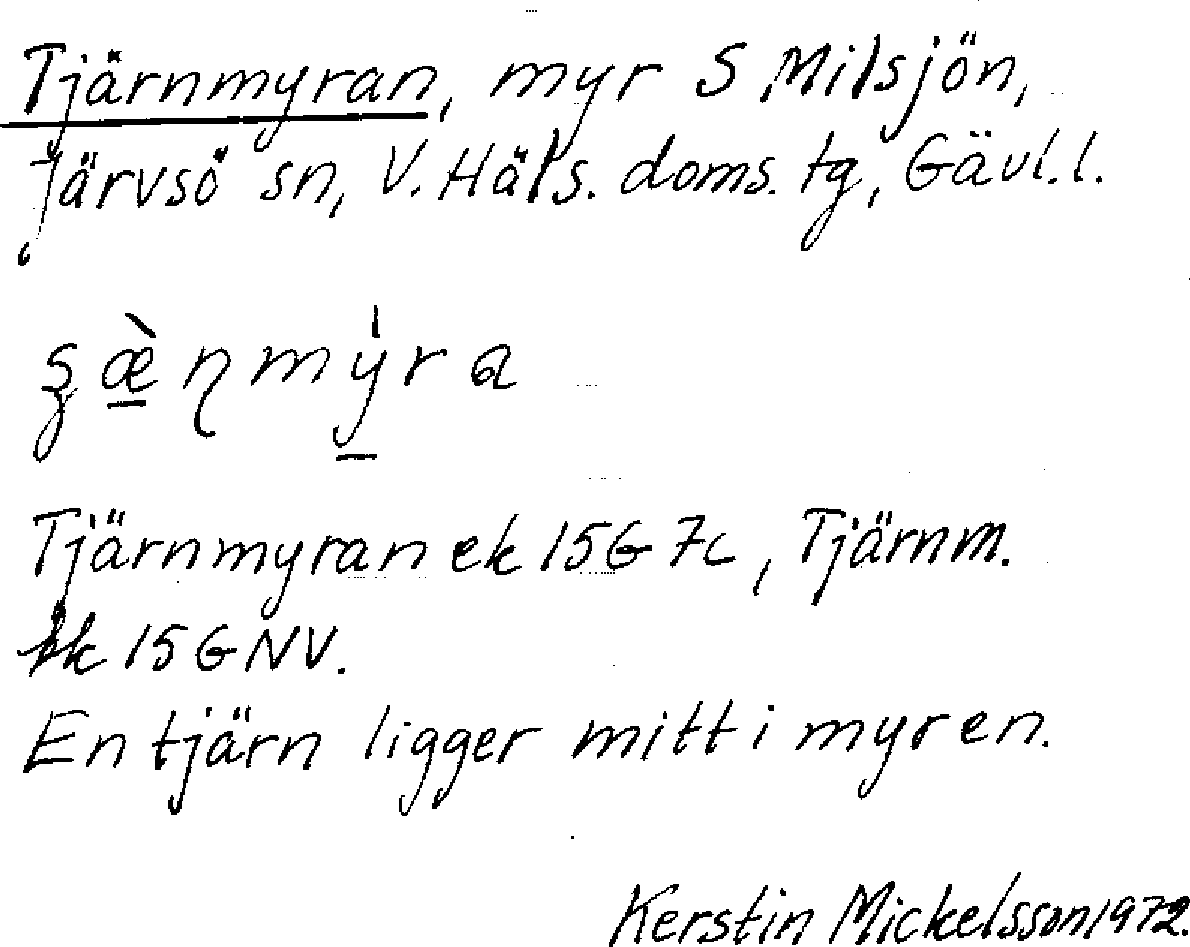 Tjärnmyran, myr S Milsjön,
Järvsö sn, V. Häls. doms. tg, Gävl. l.
Tjärnmyran ek 15G 7c, Tjärnm.
tk 15G NV.
En tjärn ligger mitt i myren.
Kerstin Mickelsson 1972.